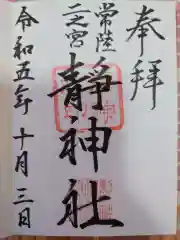 奉拝
常陸
二之宮
靜神社
令和五年十月三日